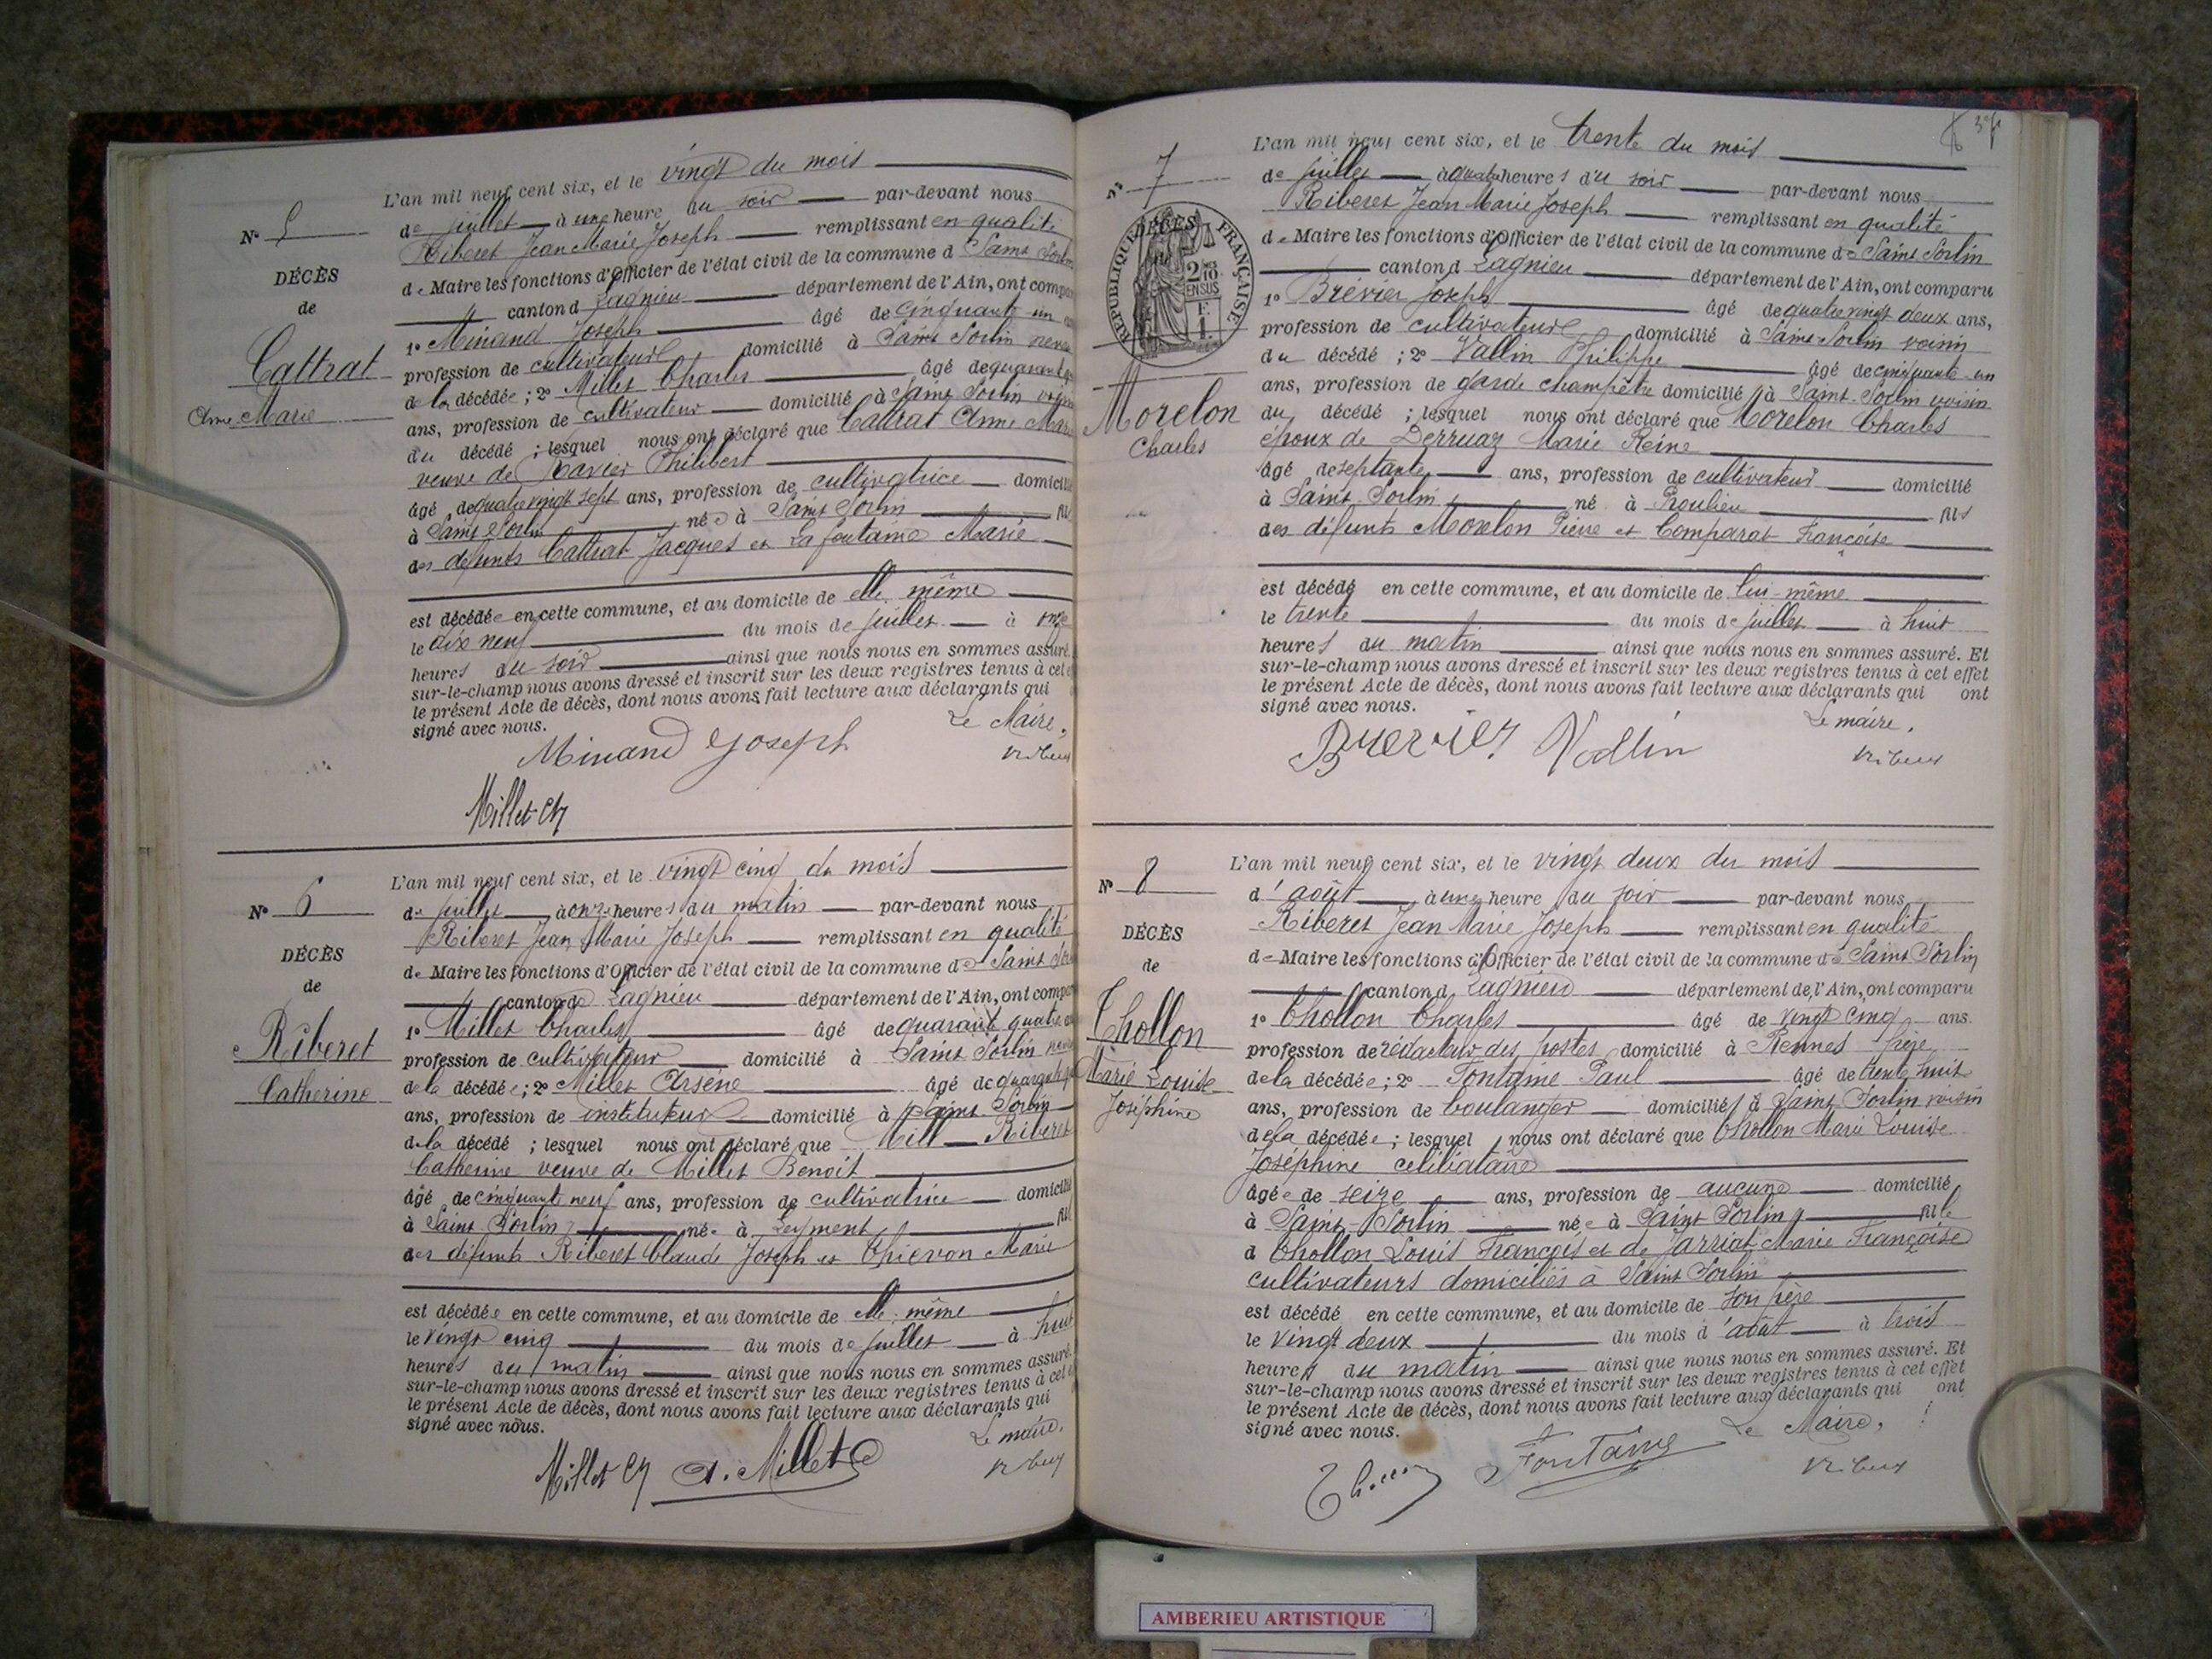 N° 5
DÉCÈS
de
Cattrat
Anne Marie
L'an mil neuf cent six, et le vingt du mois
de juillet à une heure du soir par-devant nous
Riberet Jean Marie Joseph remplissant en qualité
de Maire les fonctions d'Officier de l'état civil de la commune d Saint Sorlin
canton d Lagnieu département de l'Ain, ont compa
1° Minand Joseph âgé de cinquante un
profession de cultivateur domicilié à Saint Sorlin neveu
de la décédée ; 2° Millet Charles âgé de quarante
ans, profession de cultivateur domicilié à Saint Sorlin voisin
du décédé ; lesquel nous ont déclaré que Cattrat Anne Marie
veuve de Xavier Philibert
âgé de quatre vingt sept ans, profession de cultivatrice domicilié
à Saint Sorlin née à Saint Sorlin fil
des défunts Cattrat Jacques et Lafontaine Marie
est décédée en cette commune, et au domicile de elle même
le dix neuf du mois de juillet à onze
heures du soir ainsi que nous nous en sommes assuré.
sur-le-champ nous avons dressé et inscrit sur les deux registres tenus à cet e
le présent Acte de décès, dont nous avons fait lecture aux déclarants qui
signé avec nous.
Le Maire,
Minand Joseph
Millet Ch
N° 6
DÉCÈS
de
Riberet
Catherine
L'an mil neuf cent six, et le vingt cinq du mois
de juillet à onze heures du matin par-devant nous
Riberet Jean Marie Joseph remplissant en qualité
de Maire les fonctions d'Officier de l'état civil de la commune de Saint Sor
canton de Lagnieu département de l'Ain, ont compa
1° Millet Charles âgé de quarante quatre
profession de cultivateur domicilié à Saint Sorlin
de la décédée ; 2° Millet Arsène âgé de quarante
ans, profession de instituteur domicilié à Saint Sorlin
de la décédé ; lesquel nous ont déclaré que Mill Riberet
Catherine veuve de Millet Benoit
âgé de cinquante neuf ans, profession de cultivatrice domicilié
à Saint Sorlin née à Leyment fil
des défunts Riberet Claude Joseph et Thievon Marie
est décédée en cette commune, et au domicile de elle même
le vingt cinq du mois de juillet à huit
heures du matin ainsi que nous nous en sommes assuré.
sur-le-champ nous avons dressé et inscrit sur les deux registres tenus à cet e
le présent Acte de décès, dont nous avons fait lecture aux déclarants qui
signé avec nous.
Le maire,
Millet Ch A. Millet
N° 7
RÉPUBLIQUE FRANÇAISE
DÉCÈS
2/10 EN SUS
Morelon
Charles
L'an mil neuf cent six, et le trente du mois
de juillet à quatre heures du soir par-devant nous
Riberet Jean Marie Joseph remplissant en qualité
de Maire les fonctions d'Officier de l'état civil de la commune de Saint Sorlin
canton d Lagnieu département de l'Ain, ont comparu
1° Brevier Joseph âgé de quatre vingt deux ans,
profession de cultivateur domicilié à Saint-Sorlin voisin
du décédé ; 2° Vallin Philippe âgé de cinquante un
ans, profession de garde champêtre domicilié à Saint-Sorlin voisin
du décédé ; lesquel nous ont déclaré que Morelon Charles
époux de Derruaz Marie Reine
âgé de septante ans, profession de cultivateur domicilié
à Saint-Sorlin né à Proulieu fils
des défunts Morelon Pierre et Comparat Françoise
est décédé en cette commune, et au domicile de lui-même
le trente du mois de juillet à huit
heures du matin ainsi que nous nous en sommes assuré. Et
sur-le-champ nous avons dressé et inscrit sur les deux registres tenus à cet effet
le présent Acte de décès, dont nous avons fait lecture aux déclarants qui ont
signé avec nous.
Le maire,
Brevier Vallin
N° 8
DÉCÈS
de
Thollon
Marie Louise
Joséphine
L'an mil neuf cent six, et le vingt deux du mois
d'août à une heure du soir par-devant nous
Riberet Jean Marie Joseph remplissant en qualité
de Maire les fonctions d'Officier de l'état civil de la commune de Saint Sorlin
canton d Lagnieu département de l'Ain, ont comparu
1° Thollon Charles âgé de vingt cinq ans.
profession de rédacteur des postes domicilié à Rennes frère
de la décédée ; 2° Fontaine Paul âgé de trente huit
ans, profession de boulanger domicilié à Saint Sorlin voisin
de la décédée ; lesquel nous ont déclaré que Thollon Marie Louise
Joséphine célibataire
âgée de seize ans, profession de aucune domicilié
à Saint-Sorlin née à Saint Sorlin fille
d Thollon Louis François et de Jarriat Marie Françoise
cultivateurs domiciliés à Saint Sorlin
est décédé en cette commune, et au domicile de son père
le vingt deux du mois d'août à trois
heures du matin ainsi que nous nous en sommes assuré. Et
sur-le-champ nous avons dressé et inscrit sur les deux registres tenus à cet effet
le présent Acte de décès, dont nous avons fait lecture aux déclarants qui ont
signé avec nous.
Le Maire,
Fontaine
AMBERIEU ARTISTIQUE